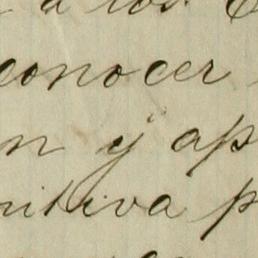 a los
conocer
n y ap
nitiva p